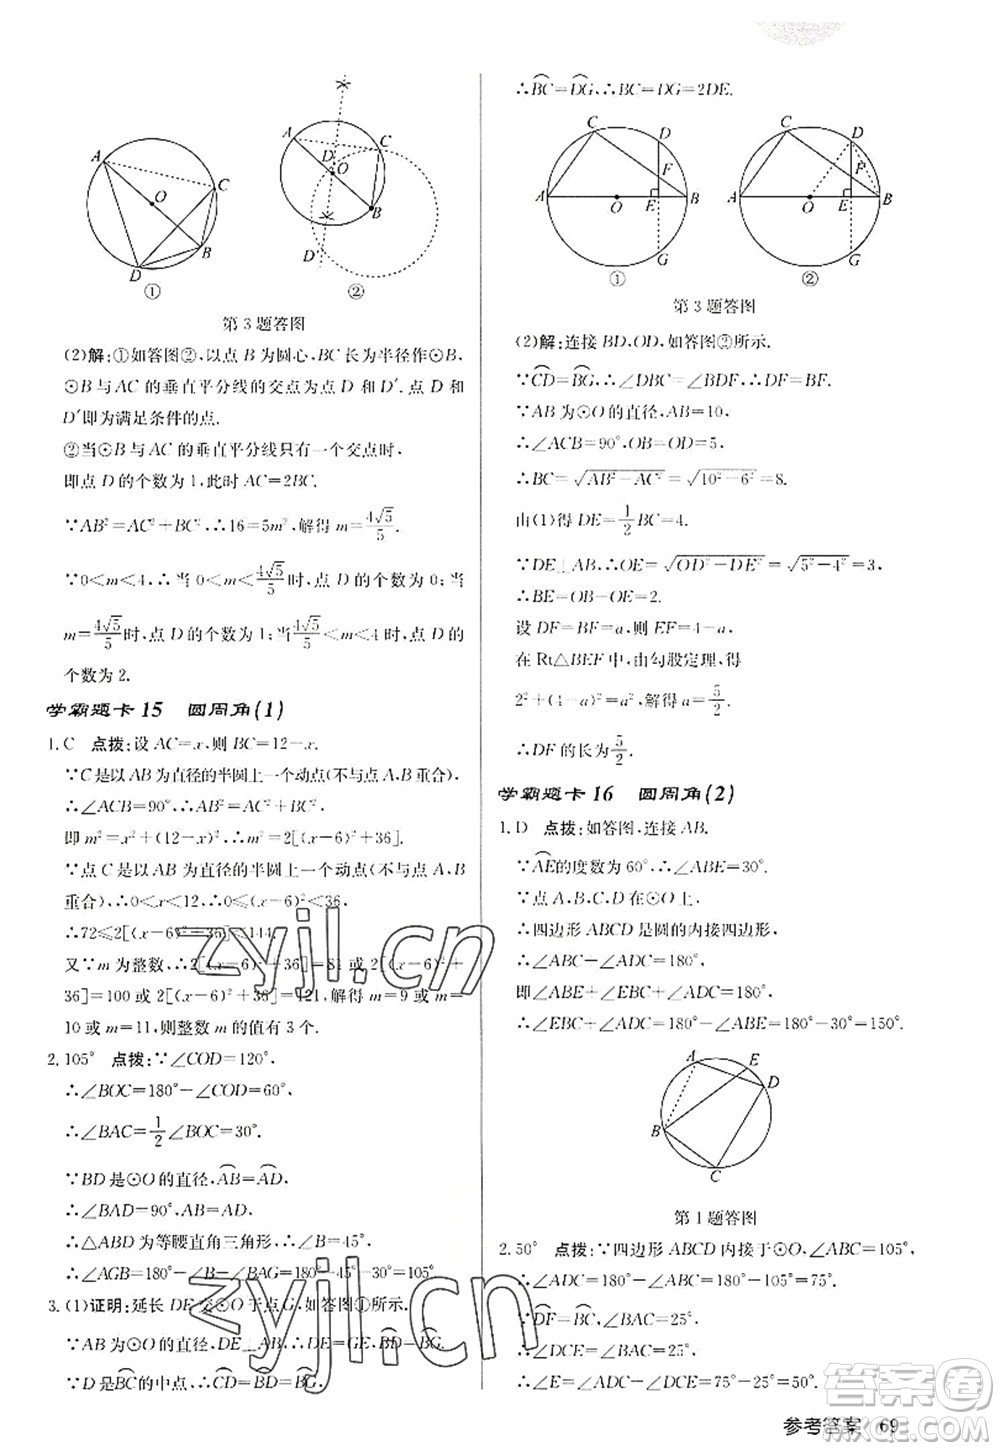 A
O
C
B
D
①
A
D
O
C
B
D′
②
第 3 题答图
(2)解:①如答图②,以点 B 为圆心,BC 长为半径作⊙B,
⊙B 与 AC 的垂直平分线的交点为点 D 和 D′. 点 D 和
D′即为满足条件的点.
②当⊙B 与 AC 的垂直平分线只有一个交点时,
即点 D 的个数为 1,此时 AC=2BC.
∵AB²=AC²+BC²,∴16=5m²,解得 m=4√5/5.
∵0<m<4,∴当 0<m<4√5/5时,点 D 的个数为 0;当
m=4√5/5时,点 D 的个数为 1;当4√5/5<m<4 时,点 D 的
个数为 2.
学霸题卡 15 圆周角(1)
1. C 点拨:设 AC=x,则 BC=12-x.
∵C 是以 AB 为直径的半圆上一个动点(不与点 A,B 重合),
∴∠ACB=90°,∴AB²=AC²+BC²,
即 m²=x²+(12-x)²,∴m²=2[(x-6)²+36].
∵点 C 是以 AB 为直径的半圆上一个动点(不与点 A,B
重合),∴0<x<12,∴0≤(x-6)²<36,
∴72≤2[(x-6)²+36]≤144.
又∵m 为整数,∴2[(x-6)²+36]=81 或 2[(x-6)²+
36]=100 或 2[(x-6)²+36]=121,解得 m=9 或 m=
10 或 m=11,则整数 m 的值有 3 个.
2. 105° 点拨:∵∠COD=120°,
∴∠BOC=180°-∠COD=60°,
∴∠BAC=1/2∠BOC=30°.
∵BD 是⊙O 的直径,AB=AD,
∴∠BAD=90°,AB=AD,
∴△ABD 为等腰直角三角形,∴∠B=45°,
∴∠AGB=180°-∠B-∠BAG=180°-45°-30°=105°.
3. (1)证明:延长 DE 交⊙O 于点 G,如答图①所示.
∵AB 为⊙O 的直径,DE⊥AB,∴DE=GE,BD=BG.
∵D 是BC的中点,∴CD=BD=BG,
∴BC=DG,∴BC=DG=2DE.
C
D
F
A
O
E
B
G
①
C
D
F
A
O
E
B
G
②
第 3 题答图
(2)解:连接 BD,OD,如答图②所示.
∵CD=BG,∴∠DBC=∠BDF,∴DF=BF.
∵AB 为⊙O 的直径,AB=10,
∴∠ACB=90°,OB=OD=5,
∴BC=√AB²-AC²=√10²-6²=8.
由(1)得 DE=1/2BC=4.
∵DE⊥AB,∴OE=√OD²-DE²=√5²-4²=3,
∴BE=OB-OE=2.
设 DF=BF=a,则 EF=4-a.
在 Rt△BEF 中,由勾股定理,得
2²+(4-a)²=a²,解得 a=5/2.
∴DF 的长为5/2.
学霸题卡 16 圆周角(2)
1. D 点拨:如答图,连接 AB.
∵AE的度数为 60°,∴∠ABE=30°.
∵点 A,B,C,D 在⊙O 上,
∴四边形 ABCD 是圆的内接四边形,
∴∠ABC+∠ADC=180°,
即∠EBC+∠ABE+∠ADC=180°,
∴∠EBC+∠ADC=180°-∠ABE=180°-30°=150°.
A
E
D
B
C
第 1 题答图
2. 50° 点拨:∵四边形 ABCD 内接于⊙O,∠ABC=105°,
∴∠ADC=180°-∠ABC=180°-105°=75°.
∵DF=BC,∠BAC=25°,
∴∠DCE=∠BAC=25°,
∴∠E=∠ADC-∠DCE=75°-25°=50°.
参考答案 69
zyjl.cn
zyjl.cn
答案圈